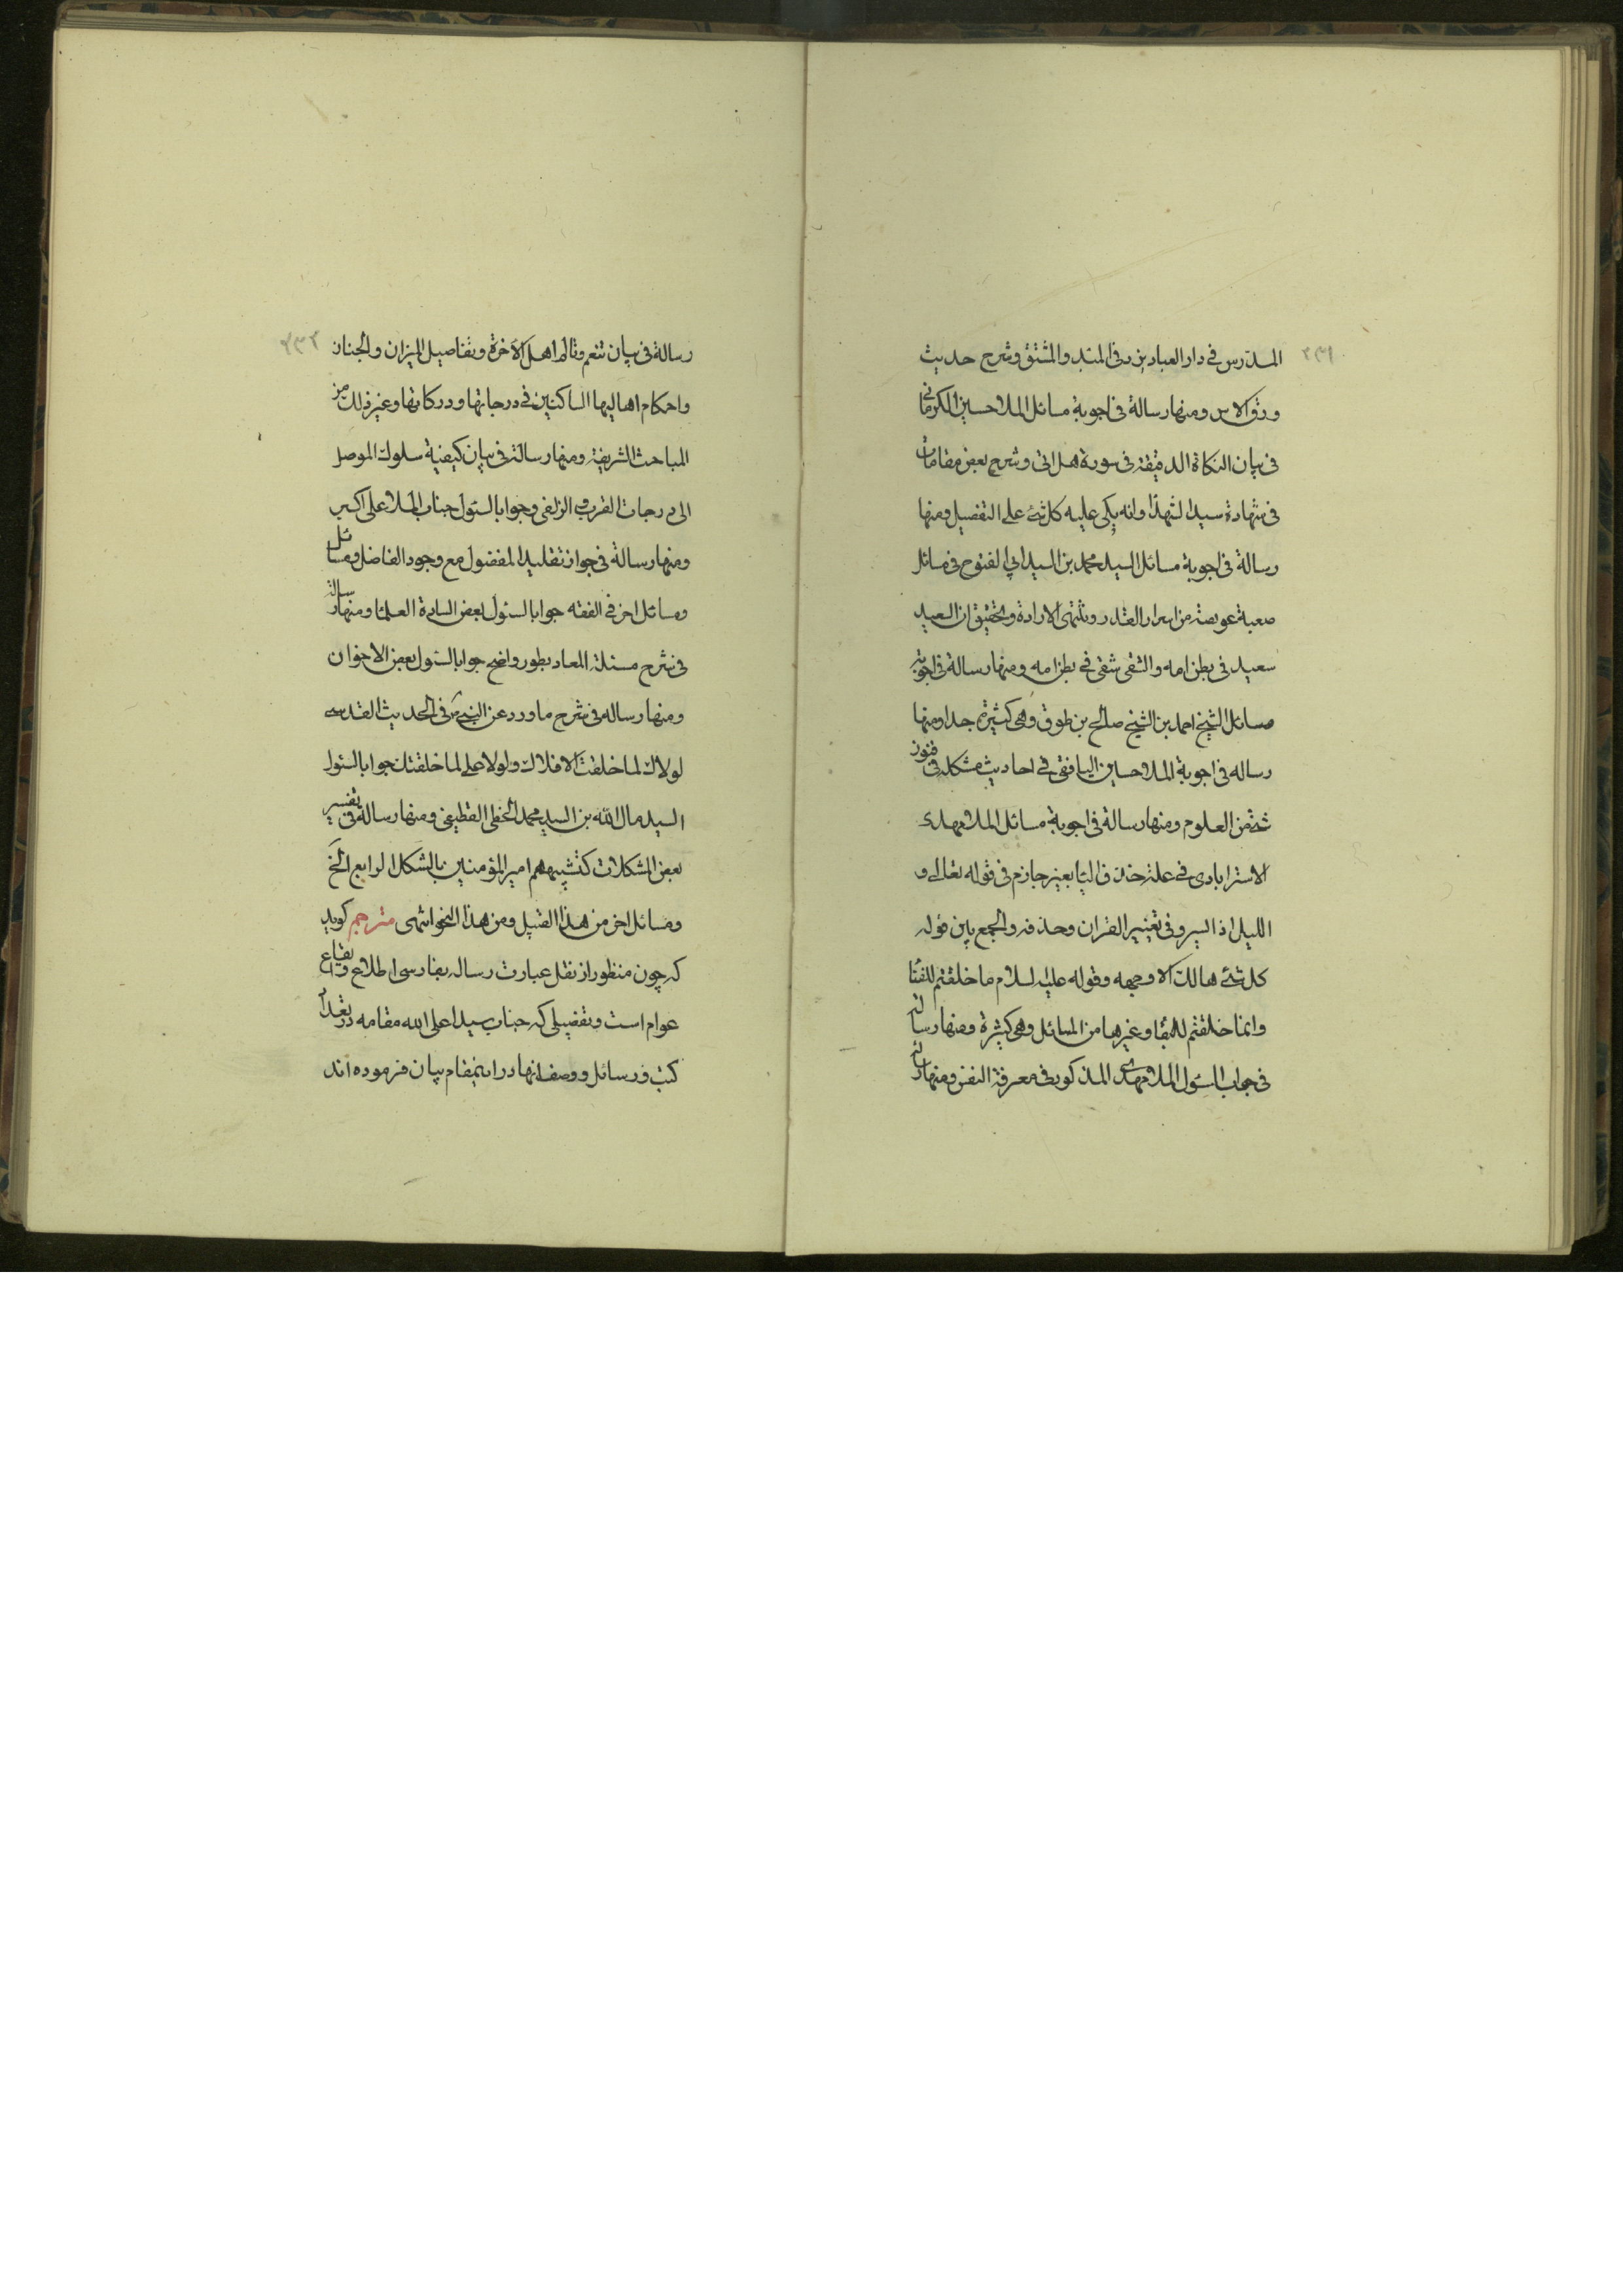 ٢٣١
المدرس فی دار العباد یزد فی المبتدا والمشتق وشرح حدیث
ورق الاس ومنها رسالة فی اجوبة مسائل الملا حسین الکرمانی
فی بیان النکاة الدقیقة فی سورة هل اتی وشرح بعض مقامات
فی شهادة سید الشهدا وانه یبکی علیه کل شئ علی التفصیل ومنها
رسالة فی اجوبة مسائل السید محمد بن السید ابی الفتوح فی مسائل
صعبة عویصة من اسرار القدر وتثنی الارادة وتحقیق ان السعید
سعید فی بطن امه والشقی شقی فی بطن امه ومنها رسالة فی اجوبة
مسائل الشیخ احمد بن الشیخ صالح بن طوق وهی کثیرة جدا ومنها
رساله فی اجوبة الملا حسین البافقی فی احادیث مشکله فی فنون
شتی من العلوم ومنها رسالة فی اجوبة مسائل الملا مهدی
الاسترابادی فی علة حذف الیا بغیر جازم فی قوله تعالی و
اللیل اذا یسر وفی تغییر القران وحذفه والجمع بین قوله
کل شئ هالک الا وجهه وقوله علیه لسلام ما خلقتم للفنا
وانما خلقتم للبقا وغیرها من المسائل وهی کثیرة ومنها رسالة
فی جواب السئول الملا مهدی المذکور فی معرفة النفس ومنها رسالة
٢٣٢
رسالة فی بیان تنعم وتالم اهل الآخرة وتفاصیل المیزان والجنان
واحکام اهالیها الساکنین فی درجاتها ودرکاتها وغیر ذلک من
المباحث الشریفة ومنها رسالة فی بیان کیفیة سلوک الموصل
الی درجات القرب والزلفی وجوابا لسئول جناب الملا علی اکبر
ومنها رسالة فی جواز تقلید المفضول مع وجود الفاضل ومسائل
ومسائل اخر فی الفقه جوابا لسئول بعض السادة العلما ومنها رسالة
فی شرح مسئلة المعاد بطور واضح جوابا لسئول بعض الاخوان
ومنها رساله فی شرح ما ورد عن النبی ص فی الحدیث القدسی
لولاک لما خلقت الافلاک ولولا علی لما خلقتک جوابا لسئول
السید مال الله بن السید محمد الخطی القطیفی ومنها رسالة فی تفسیر
بعض المشکلات کتشبیههم امیر المؤمنین بالشکل الرابع الخ
ومسائل اخر من هذا القبیل ومن هذا النحو انتهی مترجم کوید
که چون منظور از نقل عبارت رساله بفارسی اطلاع وانتفاع
عوام است وتفصیلی که جناب سید اعلی الله مقامه در تعداد
کتب ورسائل ووصف انها در اینمقام بیان فرموده اند